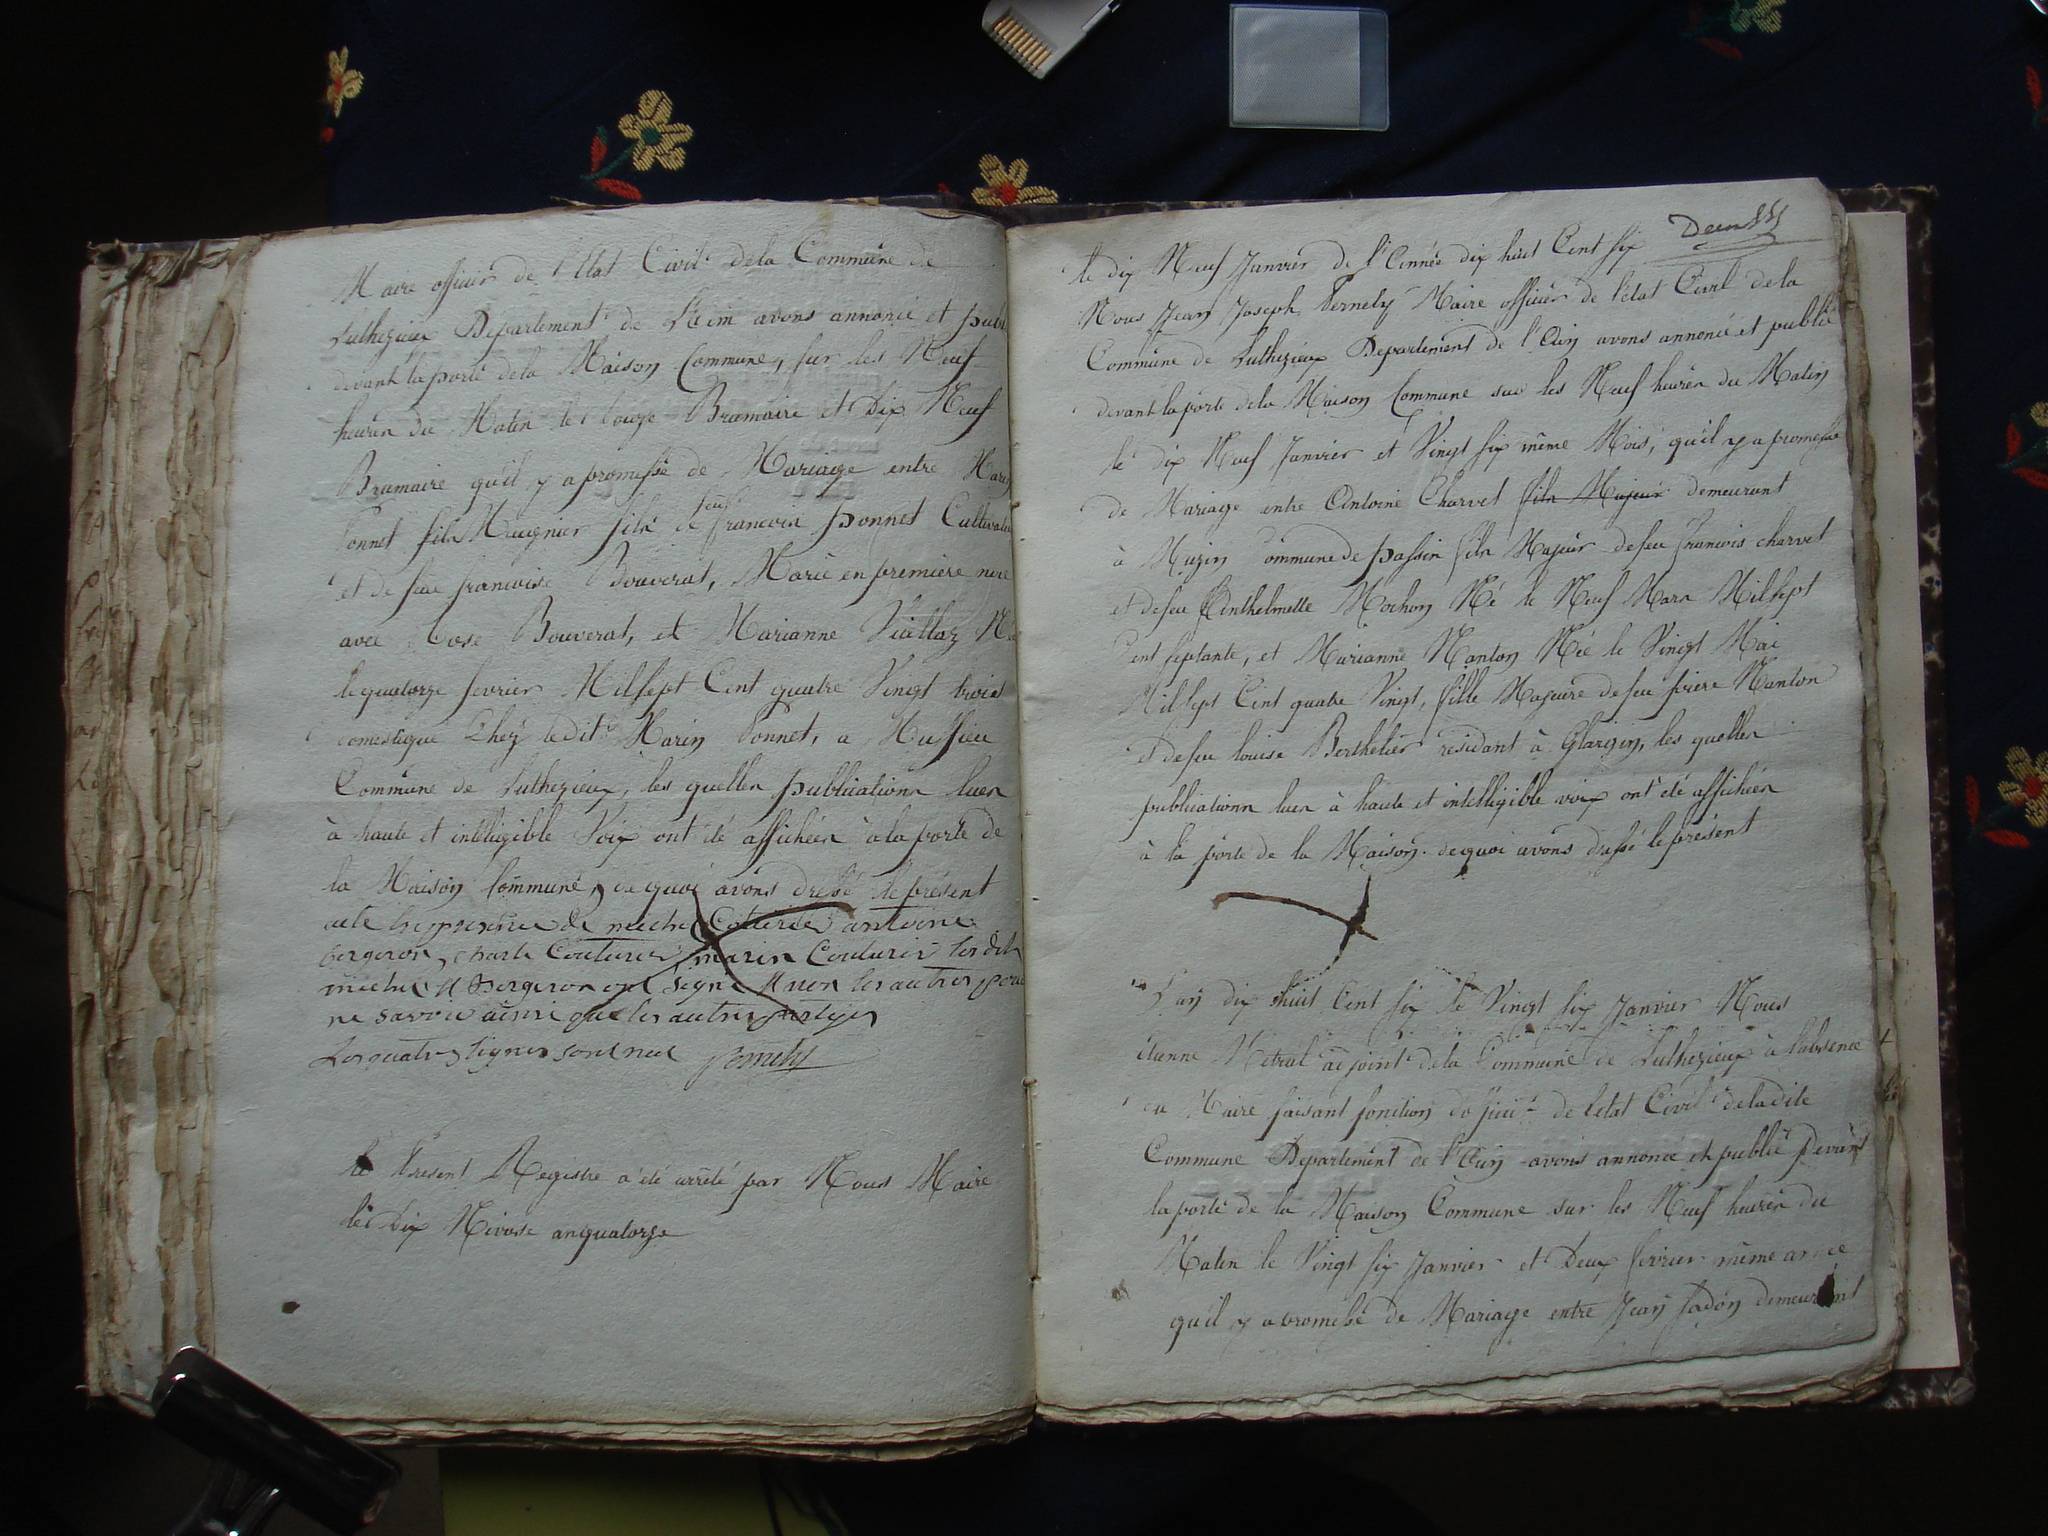 Maire officier de l'Etat Civil de la Commune de
Luthezieux Departement de L'ain avons annoncé et publ
devant la porte de la Maison Commune, sur les Neuf
heures du Matin le Douze Brumaire et Dix Neuf
Brumaire qu'il y a promesse de Mariage entre Marin
Ponnet fils Meugnier fils de feu francois ponnet Cultivateur
et de feue francoise Bouverat, Marié en premiere noce
avec Rose Bouverat, et Marianne Viallaz Née
le quatorze fevrier Mil sept Cent quatre Vingt trois
Domestique Chez ledit Marin Ponnet, a Mussieu
Commune de Luthezieux, les quelles publications lues
à haute et intelligible Voix ont été affichées à la porte de
la Maison Commune, de quoi avons dressé le présent
acte
bergeron, charle Couturier, marin Couturier les dits
ne savoir ainsi que les autres partyes
Les quatres lignes sont nul
le Present Registre a été arrêté par Nous Maire
le Dix Nivose an quatorze
le dix Neuf Janvier de l'Année dix huit Cent six
Nous Jean Joseph Maire officier de l'état Civil de la
Commune de Luthezieux Departement de l'Ain avons annoncé et publié
devant la porte de la Maison Commune sur les Neuf heures du Matin
le dix Neuf Janvier et Vingt six même Mois, qu'il y a promesse
de Mariage entre Antoine Charvet fils Majeur demeurant
à Muzin Commune de passin fils Majeur de feu francois charvet
et de feu Anthelmette Mochon Né le Neuf Mars Mil sept
Cent septante, et Marianne Nanton Née le Vingt Mai
Mil sept Cent quatre Vingt, fille Majeure de feu Nanton
et de feu louise Berthelier residant à Glargin, les quelles
publications lues à haute et intelligible voix ont été affichées
à la porte de la Maison. de quoi avons dressé le présent
L'an dix huit Cent six le Vingt six Janvier Nous
étienne Métral adjoint de la Commune de Luthezieux à l'absence
du Maire faisant fonction d'officier de l'etat Civil de la dite
Commune Departement de l'Ain avons annoncé et publié Devant
la porte de la Maison Commune sur les Neuf heures du
Matin le Vingt six Janvier et Deux fevrier même année
qu'il y a promesse de Mariage entre Jean demeurant